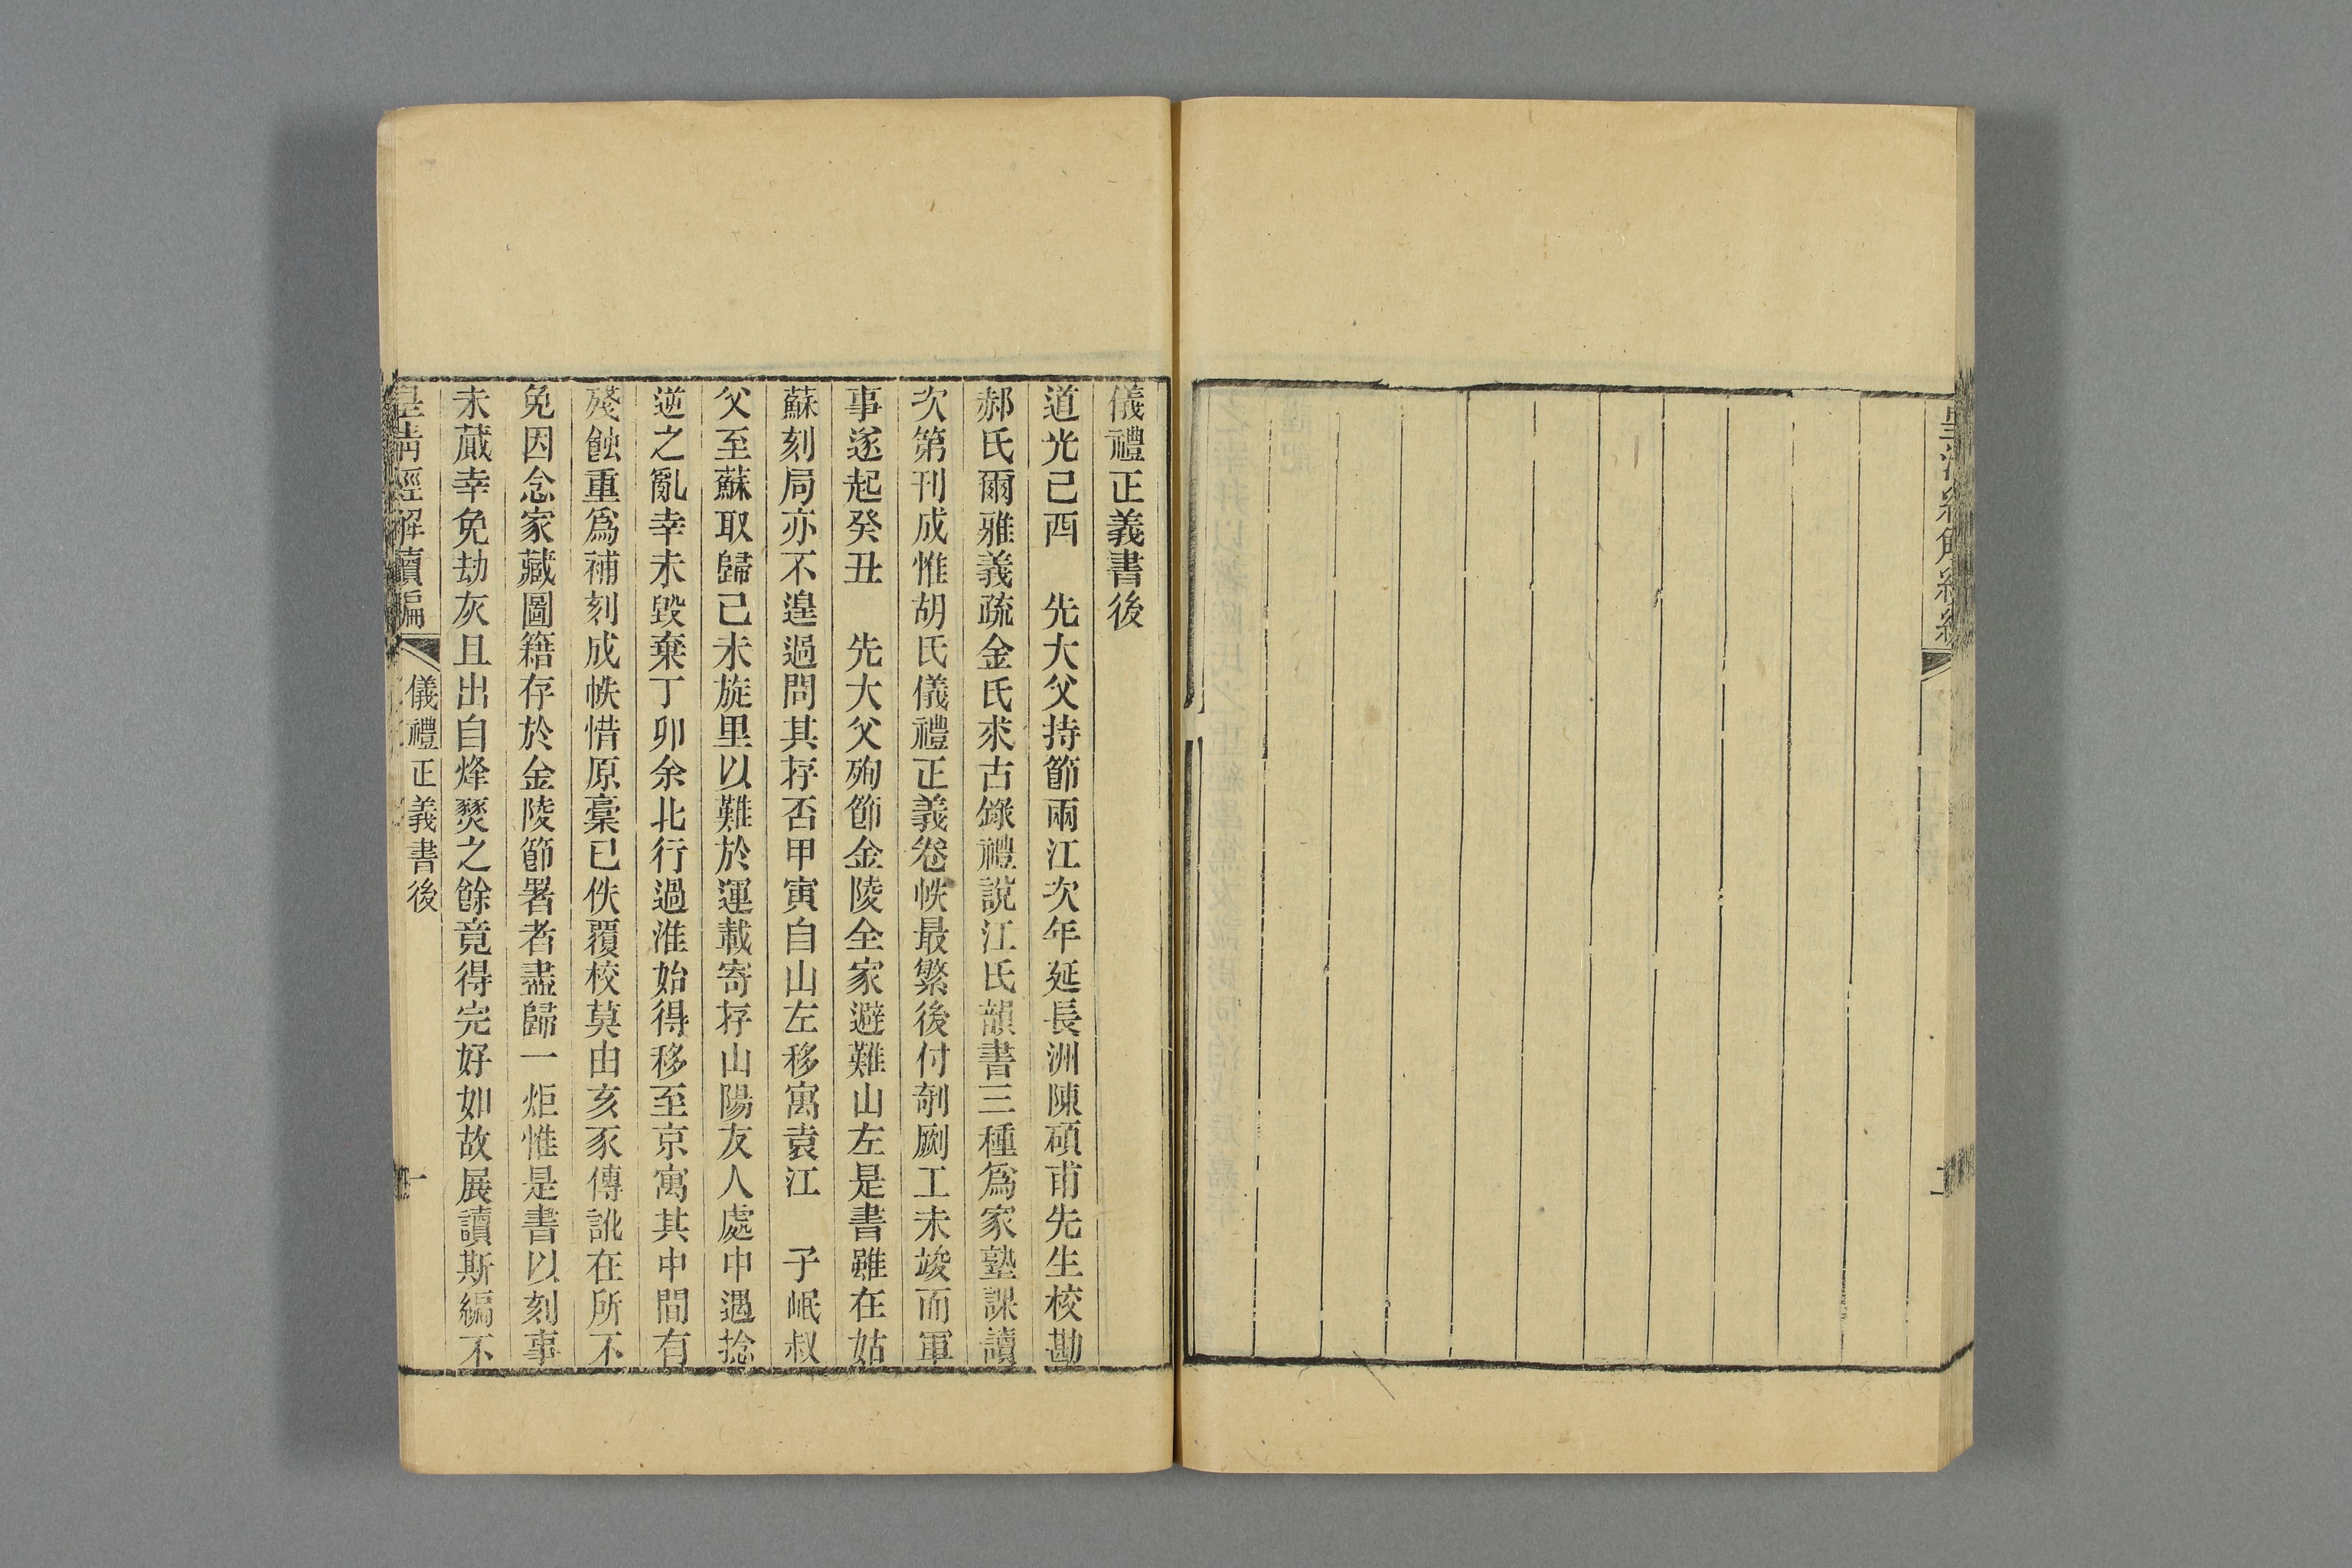 儀禮正義書後
道光己酉　先大父持節兩江次年延長洲陳碩甫先生校勘
郝氏爾雅義疏金氏求古錄禮說江氏韻書三種爲家塾課讀
次第刊成惟胡氏儀禮正義卷帙最繁後付剞劂工未竣而軍
事遂起癸丑　先大父殉節金陵全家避難山左是書雖在姑
蘇刻局亦不遑過問其存否甲寅自山左移寓袁江　子岷叔
父至蘇取歸己未旋里以難於運載寄存山陽友人處中遇捻
逆之亂幸未毀棄丁卯余北行過淮始得移至京寓其中間有
殘蝕重爲補刻成帙惜原稾已佚覆校莫由亥豕傳訛在所不
免因念家藏圖籍存於金陵節署者盡歸一炬惟是書以刻事
未蕆幸免劫灰且出自烽燹之餘竟得完好如故展讀斯編不
皇清經解續編
儀禮正義書後
一